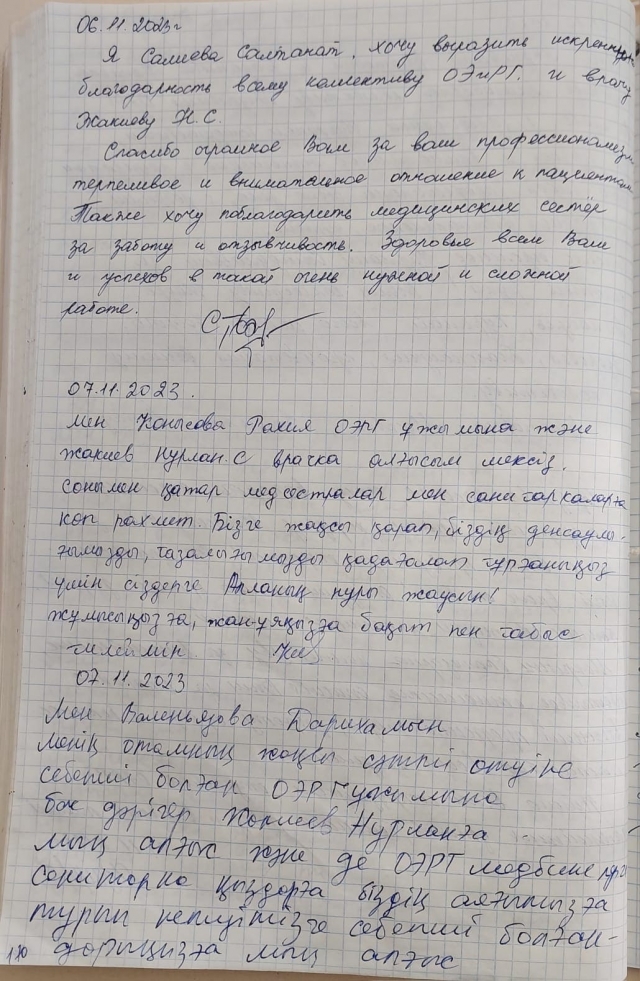 06.11.2023г
Я Салиева Салтанат, хочу выразить искреннюю
благодарность всему коллективу ОЭиРГ. и врачу
Жакиеву Н.С.
Спасибо огромное Вам за ваш профессионализм
терпеливое и внимательное отношение к пациентам
Также хочу поблагодарить медицинских сестёр
за заботу и отзывчивость. Здоровья всем Вам
и успехов в такой очень нужной и сложной
работе.
07.11.2023.
Мен Конысова Рахия ОЭРГ ұжымына және
жакиев Нурлан.С врачка алғысым шексіз.
сонымен қатар медсестралар мен санитаркаларға
көп рахмет. Бізге жақсы қарап, біздің денсаулы-
ғымызды, тазалығымызды қадағалап тұрғаныңыз
үшін сіздерге Алланың нұры жаусын!
жұмысыңызға, жан-ұяңызға бақыт пен табыс
тилеймін
07.11.2023
Мен Дарихамын
менің отамның жақсы сәтті өтуіне
себепші болған ОЭРГ ұжымына
бас дәрігер Жакиев Нурланға
мың алғыс және де ОЭРГ медбике
санитарка қыздарға біздің аяғымызға
турып кетуімізге себепші болған-
дарыңызға мың алғыс